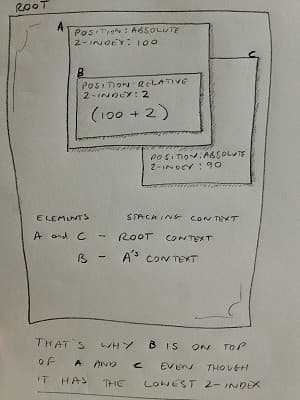 ROOT
A
POSITION: ABSOLUTE
Z-INDEX: 100
B
POSITION: RELATIVE
Z-INDEX: 2
(100 + 2)
C
POSITION: ABSOLUTE
Z-INDEX: 90
ELEMENTS STACKING CONTEXT
A and C - ROOT CONTEXT
B - A'S CONTEXT
THAT'S WHY B IS ON TOP
OF A AND C EVEN THOUGH
IT HAS THE LOWEST Z-INDEX